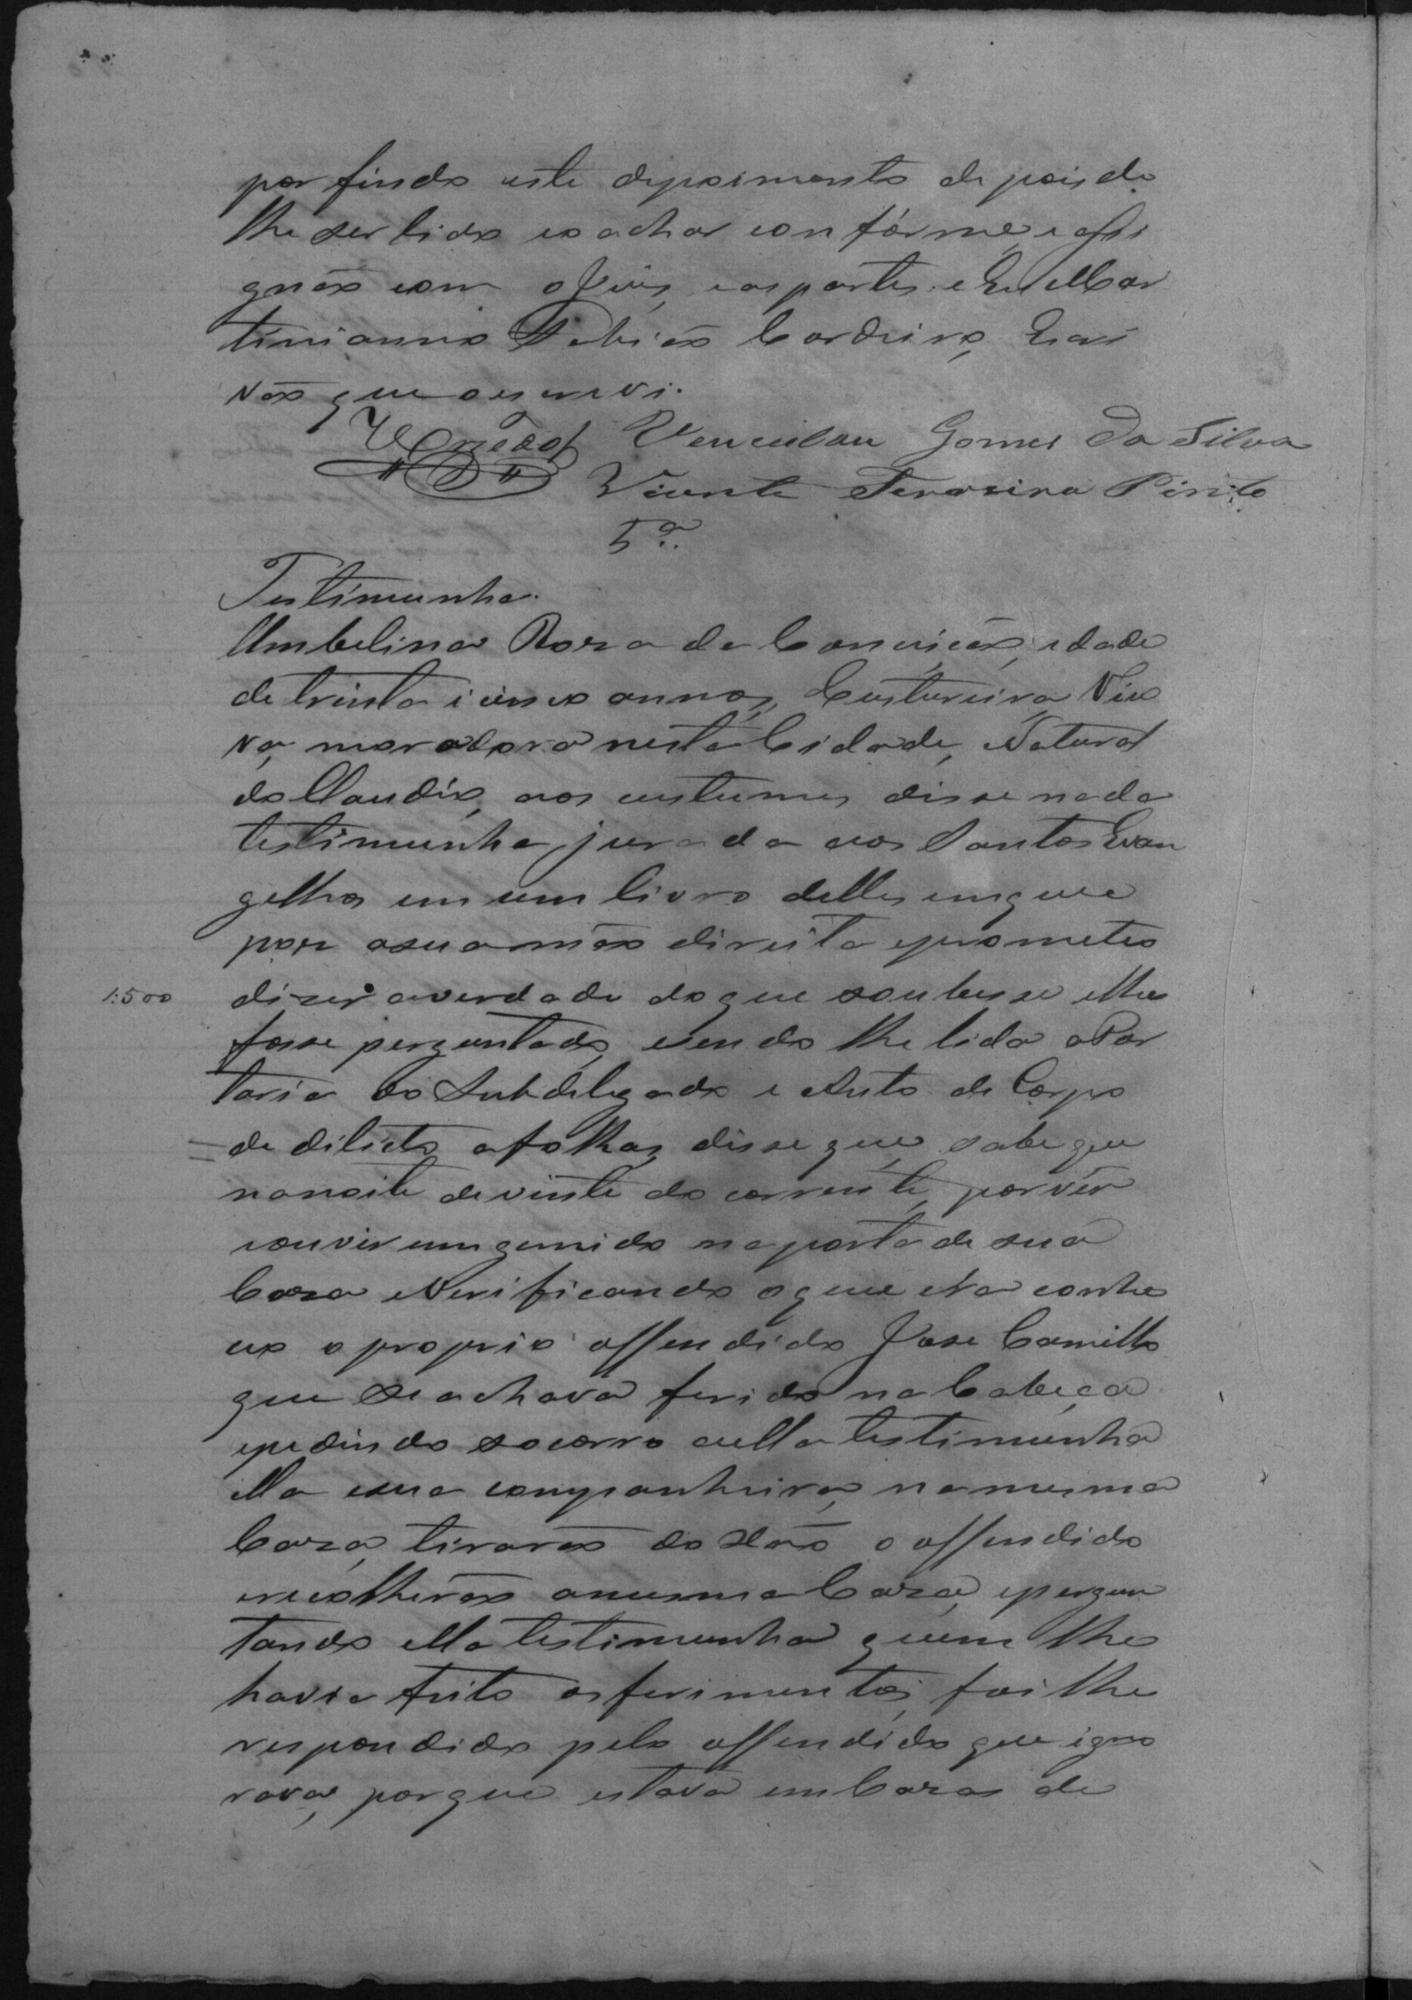 por findo este depoimento depois de
lhe ser lido e o achar conforme e assi
gnão com o Juis, e as partes. e Eu Mar
timianno Cordeiro, Escri
vão que o escrevi.
Venceslau Gomes Da Silva
Vicente Ferreira Pinto
5ª.
Testimunha.
Umbelina Roza da Conceição, edade
de trinta i cinco annos, Custureira Viu
va, moradora nesta Cidade, Natural
do Claudio, aos custumes disse nada
testimunha jurada aos Santos Evan
gelhos em um livro delles em que
poz a sua mão direita e prometeo
1:500
dizer a verdade do que soubesse e lhe
fosse perguntado, e sendo lhe lida a Por
taria do Subdelegado e Auto de Corpo
de dilicto afolhas, disse que sabe que
na noite de vinte do corrente, por vêr
e ouvir um gemido na porta de sua
Caza e Verificando o que era conhe
ceo o proprio offendido Jose Camillo
que se achava ferido na Cabeça
e pedindo socorro a ella testimunha
ella e sua companheira, na mesma
Caza, tirarão do xão o offendido
e recolherão a mesma Caza, e pergun
tando ella testimunha quem lhe
havia feito os ferimentos, foi lhe
respondido pelo offendido que igno
rava, porque estava em Cazas de